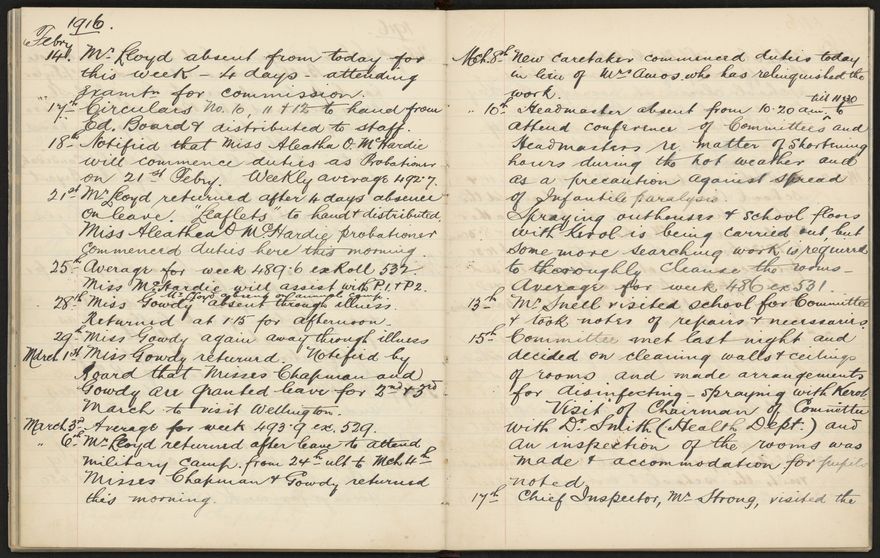 1916.
Febry
14th. Mr Lloyd absent from today for
this week - 4 days - attending
examtn for commission.
" 17th Circulars No. 10, 11 & 12 to hand from
Ed. Board & distributed to staff.
18th Notified that Miss Aleatha O. McHardie
will commence duties as Probationer
on 21st Febry. Weekly average 492.7.
21st Mr Lloyd returned after 4 days absence
on leave. "Leaflets" to hand & distributed,
Miss Aleathea O McHardie probationer
commenced duties here this morning.
25th Average for week 489.6 ex Roll 532.
Miss McHardie will assist with P.1. & P2.
Mr Lloyd away on annual camp.
28th Miss Gowdy absent through illness.
Returned at 1.15 for afternoon.
29th Miss Gowdy again away through illness
March 1st Miss Gowdy returned. Notified by
Board that Misses Chapman and
Gowdy are granted leave for 2nd & 3rd
March to visit Wellington.
March 3rd Average for week 493.9 ex. 529.
" 6th Mr Lloyd returned after leave to attend
military camp from 24th ult to Mch 4th
Misses Chapman & Gowdy returned
this morning.
Mch. 8th New Caretaker commenced duties today
in lieu of Mrs Amos, who has relinquished the
work.
till 11.30
10th Headmaster absent from 10.20 a.m. to
attend conference of Committees and
Headmasters re matter of shortening
hours during the hot weather and
as a precaution against spread
of Infantile paralysis.
Spraying outhouses & school floors
with Kerol is being carried out but
some more searching work is required
to thoroughly cleanse the rooms.
Average for week 486 ex 531.
13th Mr Snell visited school for Committee
& took notes of repairs & necessaries.
15th Committee met last night and
decided on cleaning walls & ceilings
of rooms and made arrangements
for disinfecting - spraying with Kerol
Visit of Chairman of Committee
with Dr Smith (Health Dept.) and
an inspection of the rooms was
made & accommodation for pupils
noted.
17th Chief Inspector, Mr Strong, visited the